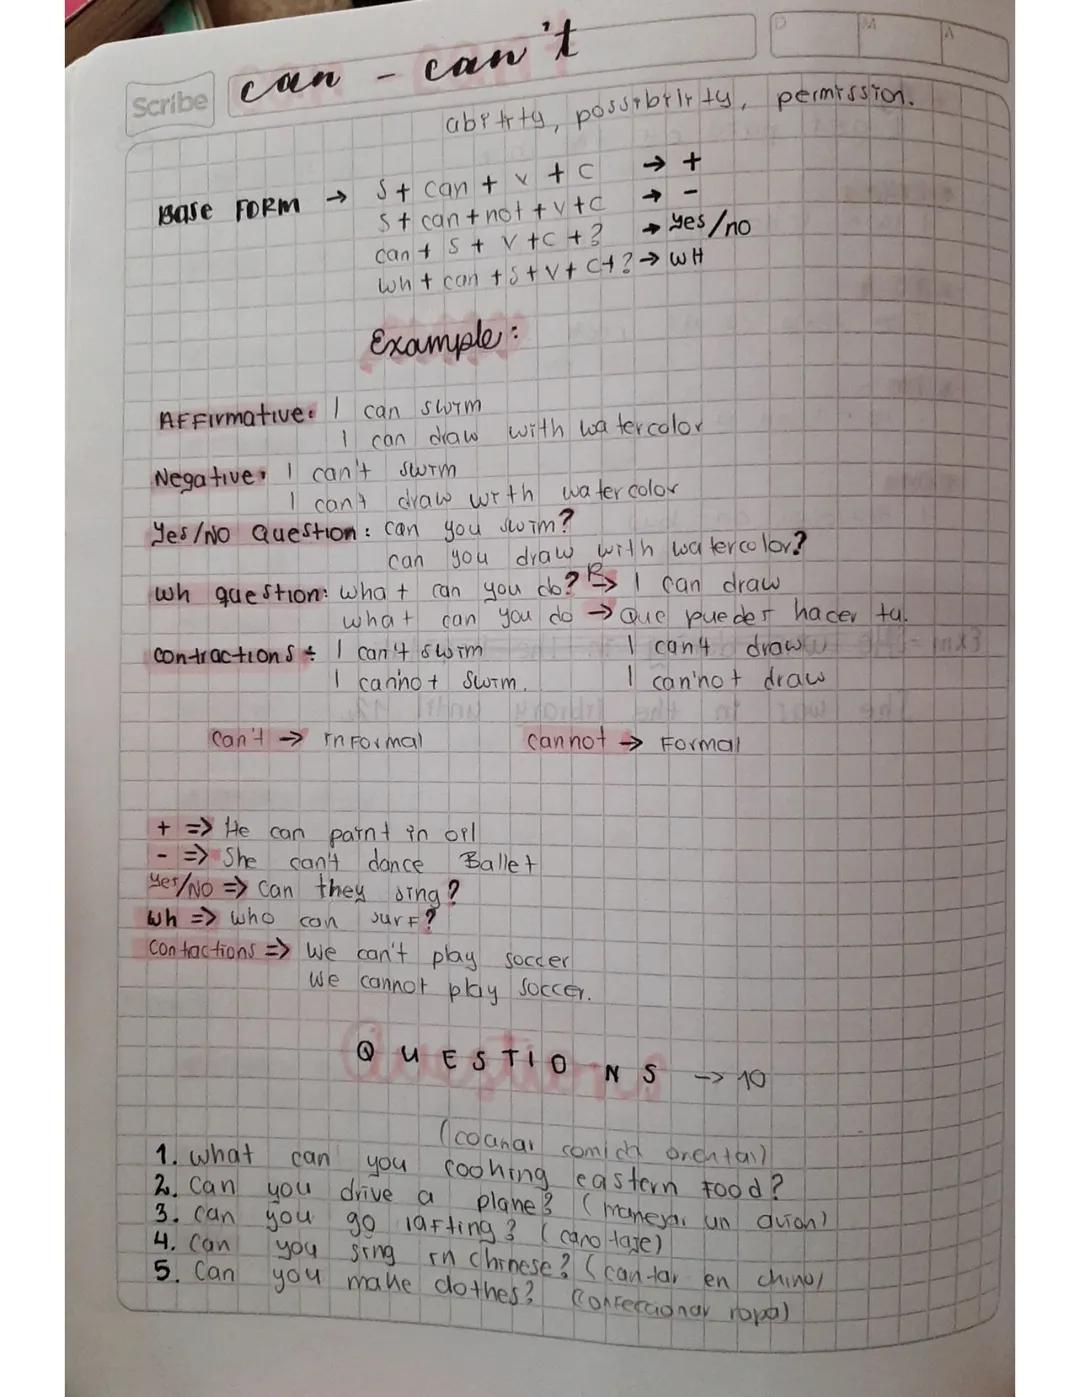 Scribe
can - can't
D M A
ability, possibility, permission.
Base FORM → S + can + v + c → +
S + can + not + v + c → -
can + S + v + c + ? → yes/no
wh + can + s + v + c + ? → WH
Example:
AFFirmative: I can swim
I can draw with watercolor
Negative: I can't swim
I can't draw with watercolor
Yes/No Question: can you swim?
can you draw with watercolor?
Wh question: what can you do? R→ I can draw
what can you do → Que puedes hacer tu.
contractions: I can't swim I can't draw
I cannot swim. I can'not draw
can't → inFormal cannot → Formal
+ => He can paint in oil
- => She can't dance Ballet
Yes/No => Can they sing?
Wh => who can surf?
Contactions => We can't play soccer
We cannot play soccer.
QUESTIONS -> 10
oriental)
1. What can you cooking eastern Food?
2. Can you drive a plane? (manejar un avion)
3. Can you go rafting? (canotaje)
4. Can you sing in chinese? (cantar en chino)
5. Can you make clothes? (confeccionar ropa)